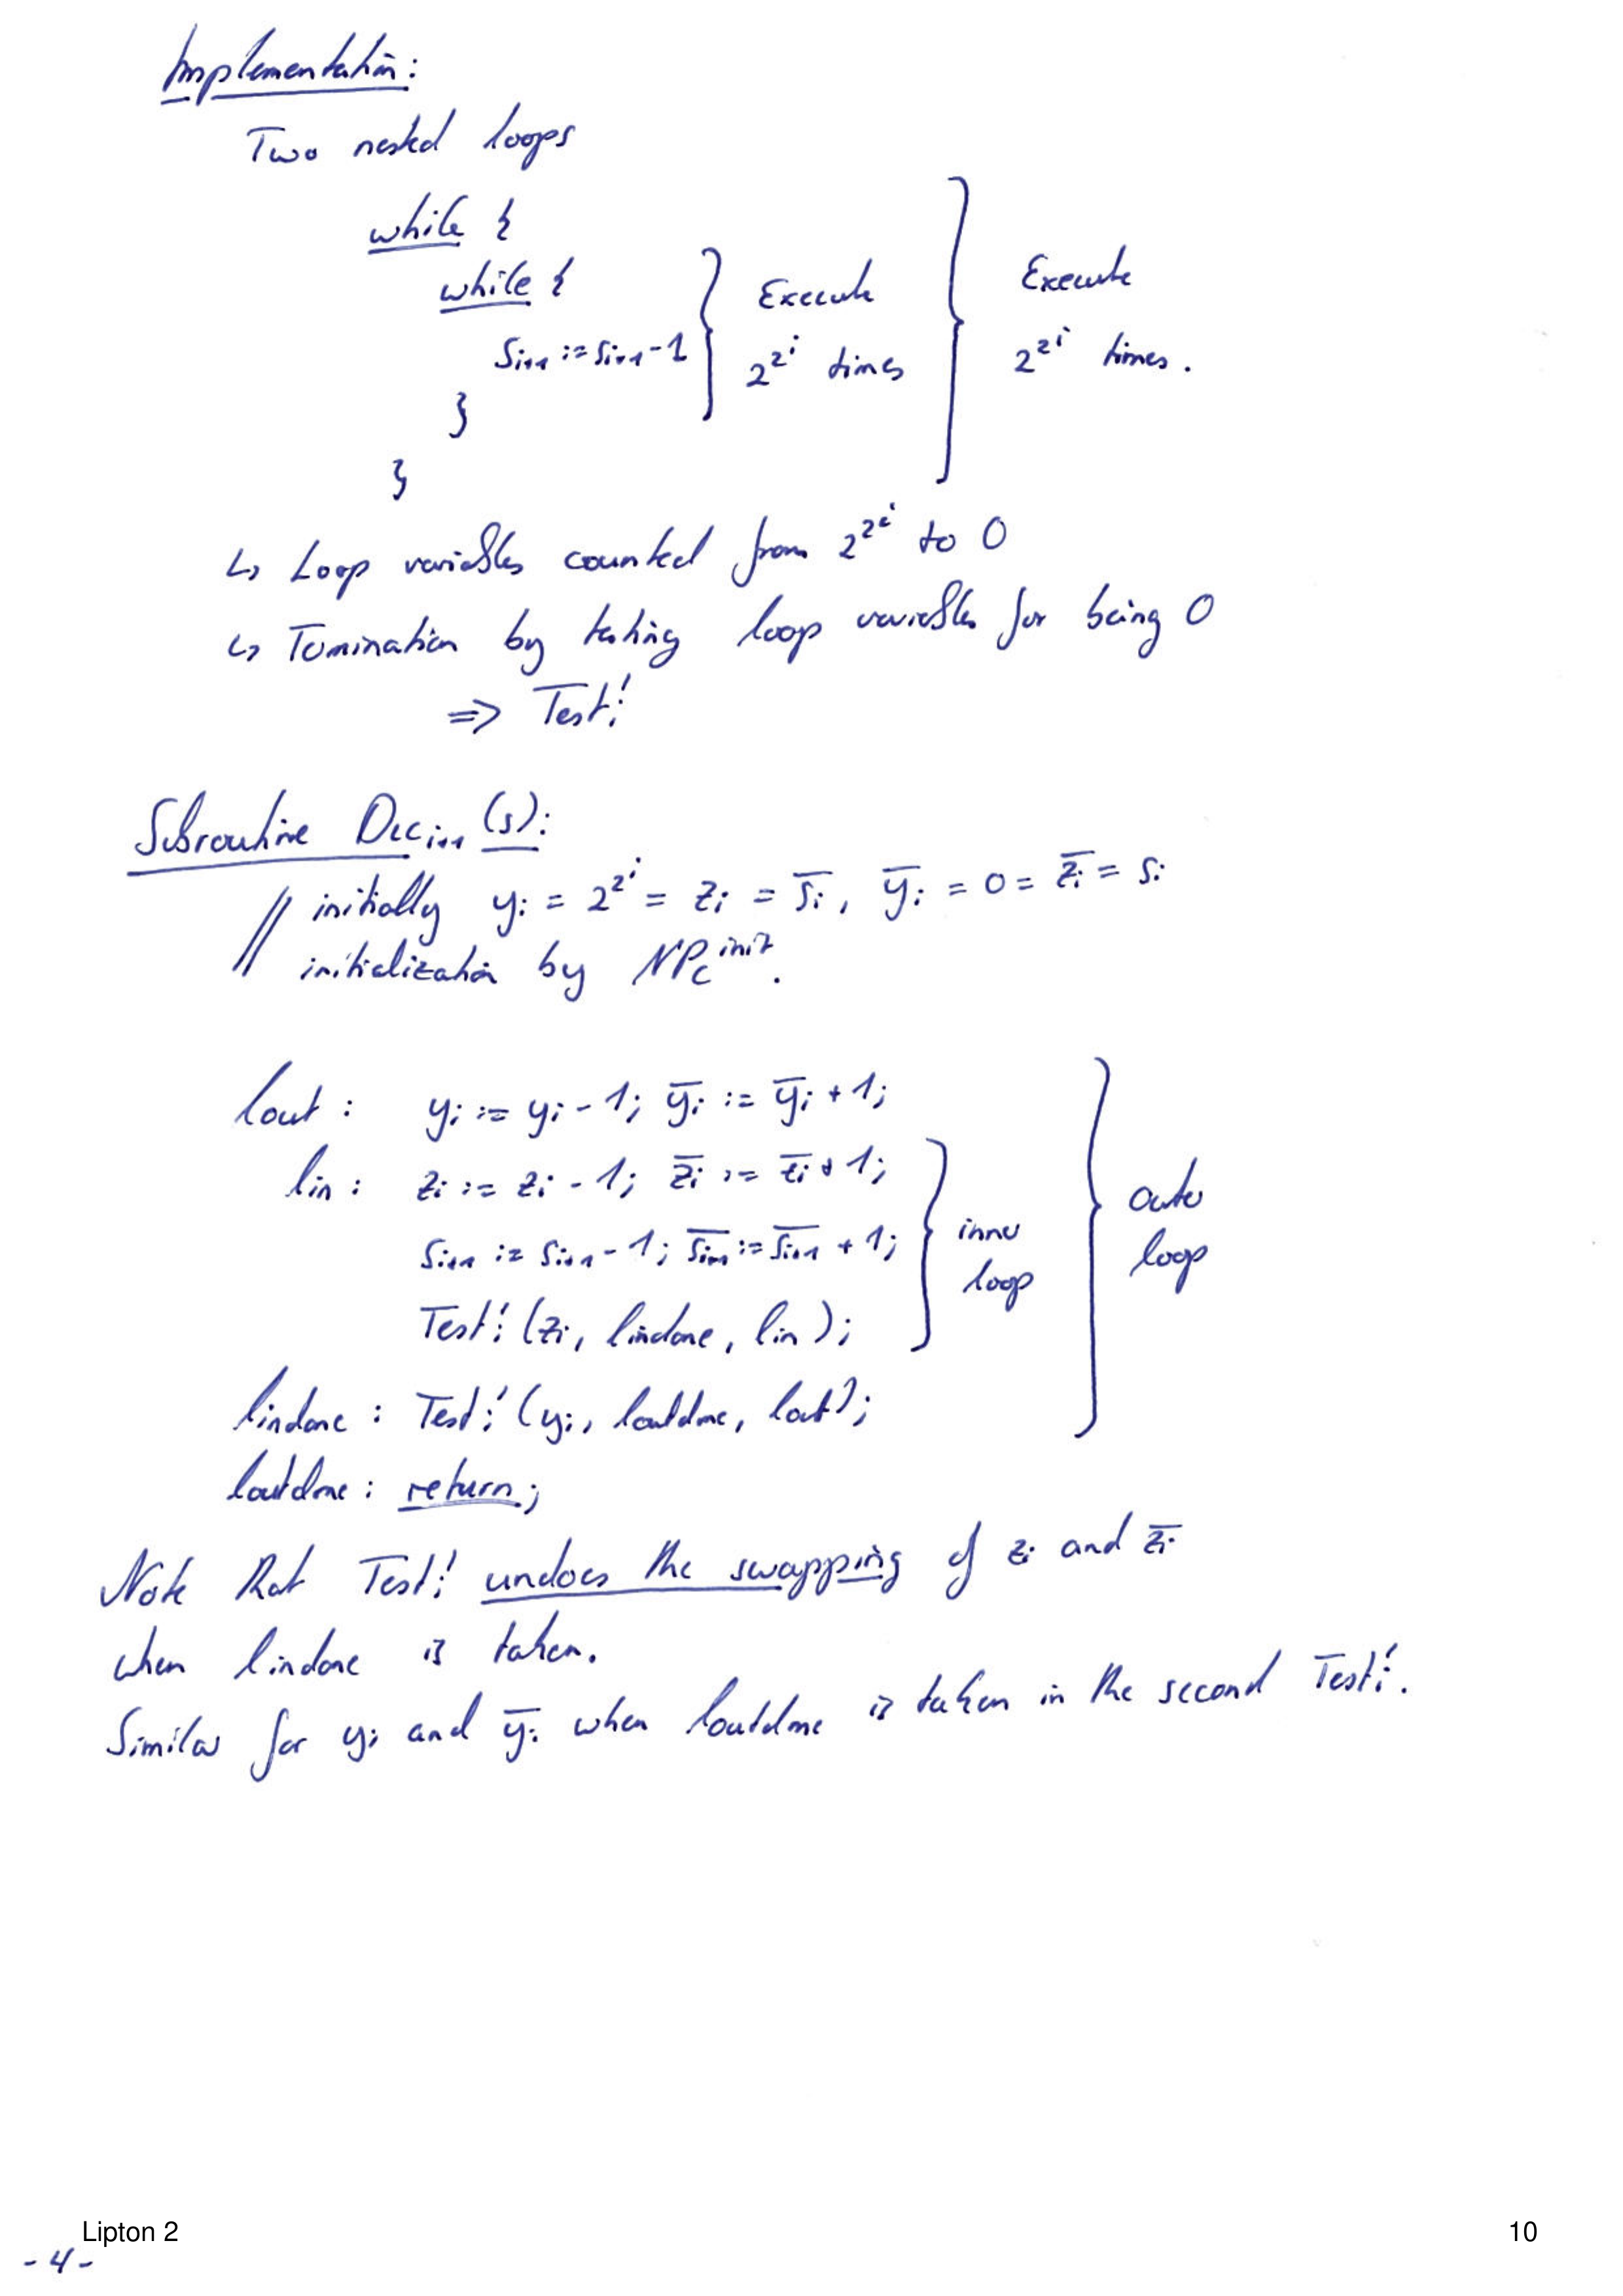 Implementation:
Two nested loops
while {
while {
s_{i+1} := s_{i+1} - 1
}
}
Execute 2^{2^i} times
Execute 2^{2^i} times.
↳ Loop variables counted from 2^{2^i} to 0
↳ Termination by testing loop variables for being 0
=> Test!
Subroutine Dec_{i+1} (s):
// initially y_i = 2^{2^i} = z_i = s̅_i, y̅_i = 0 = z̅_i = s_i
initialization by NP_C^{init}.
lout : y_i := y_i - 1; y̅_i := y̅_i + 1;
lin : z_i := z_i - 1; z̅_i := z̅_i + 1;
s_{i+1} := s_{i+1} - 1; s̅_{i+1} := s̅_{i+1} + 1;
Test_i' (z_i, lindone, lin);
inner loop
lindone : Test_i' (y_i, loutdone, lout);
outer loop
loutdone : return;
Note that Test_i' undoes the swapping of z_i and z̅_i
when lindone is taken.
Similar for y_i and y̅_i when loutdone is taken in the second Test_i'.
Lipton 2
10
- 4 -